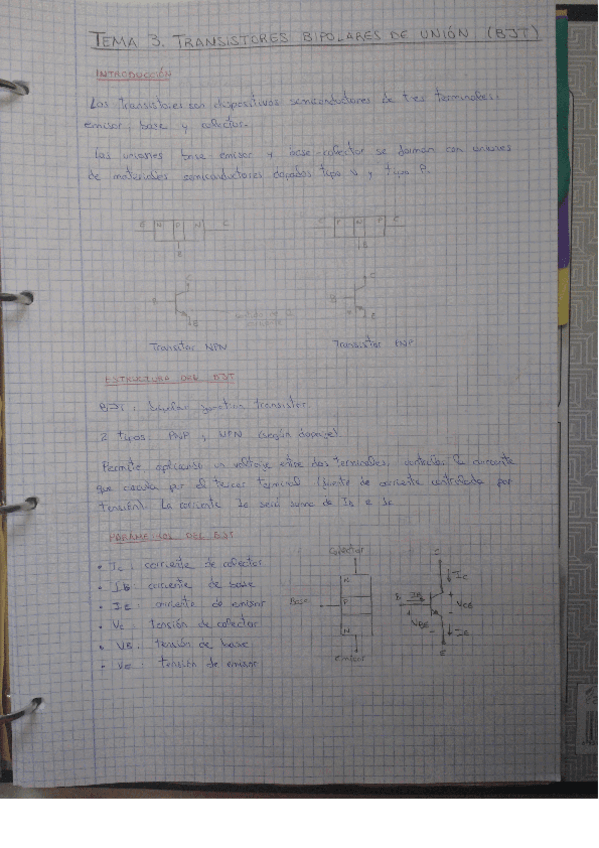 TEMA 3. TRANSISTORES BIPOLARES DE UNIÓN (BJT)
INTRODUCCIÓN
Los transistores son dispositivos semiconductores de tres terminales:
emisor, base y colector.
Las uniones base emisor y base-colector se forman con uniones
de materiales semiconductores dopados tipo N y tipo P.
E N P N C
B
E P N P C
B
C
B
E
C
B
E
Transistor NPN
Transistor PNP
ESTRUCTURA DEL BJT
BJT: bipolar junction transistor.
2 tipos: PNP y NPN (según dopaje)
Permite, aplicando un voltaje entre dos terminales, controlar la corriente
que circula por el tercer terminal (fuente de corriente controlada por
tensión). La corriente IE será suma de IB e IC
PARÁMETROS DEL BJT
• IC: corriente de colector
• IB: corriente de base
• IE: corriente de emisor
• VC: tensión de colector
• VB: tensión de base
• VE: tensión de emisor
Colector
N
Base P
N
emisor
C
IC
B IB
+
VCE
VBE
-
IE
E